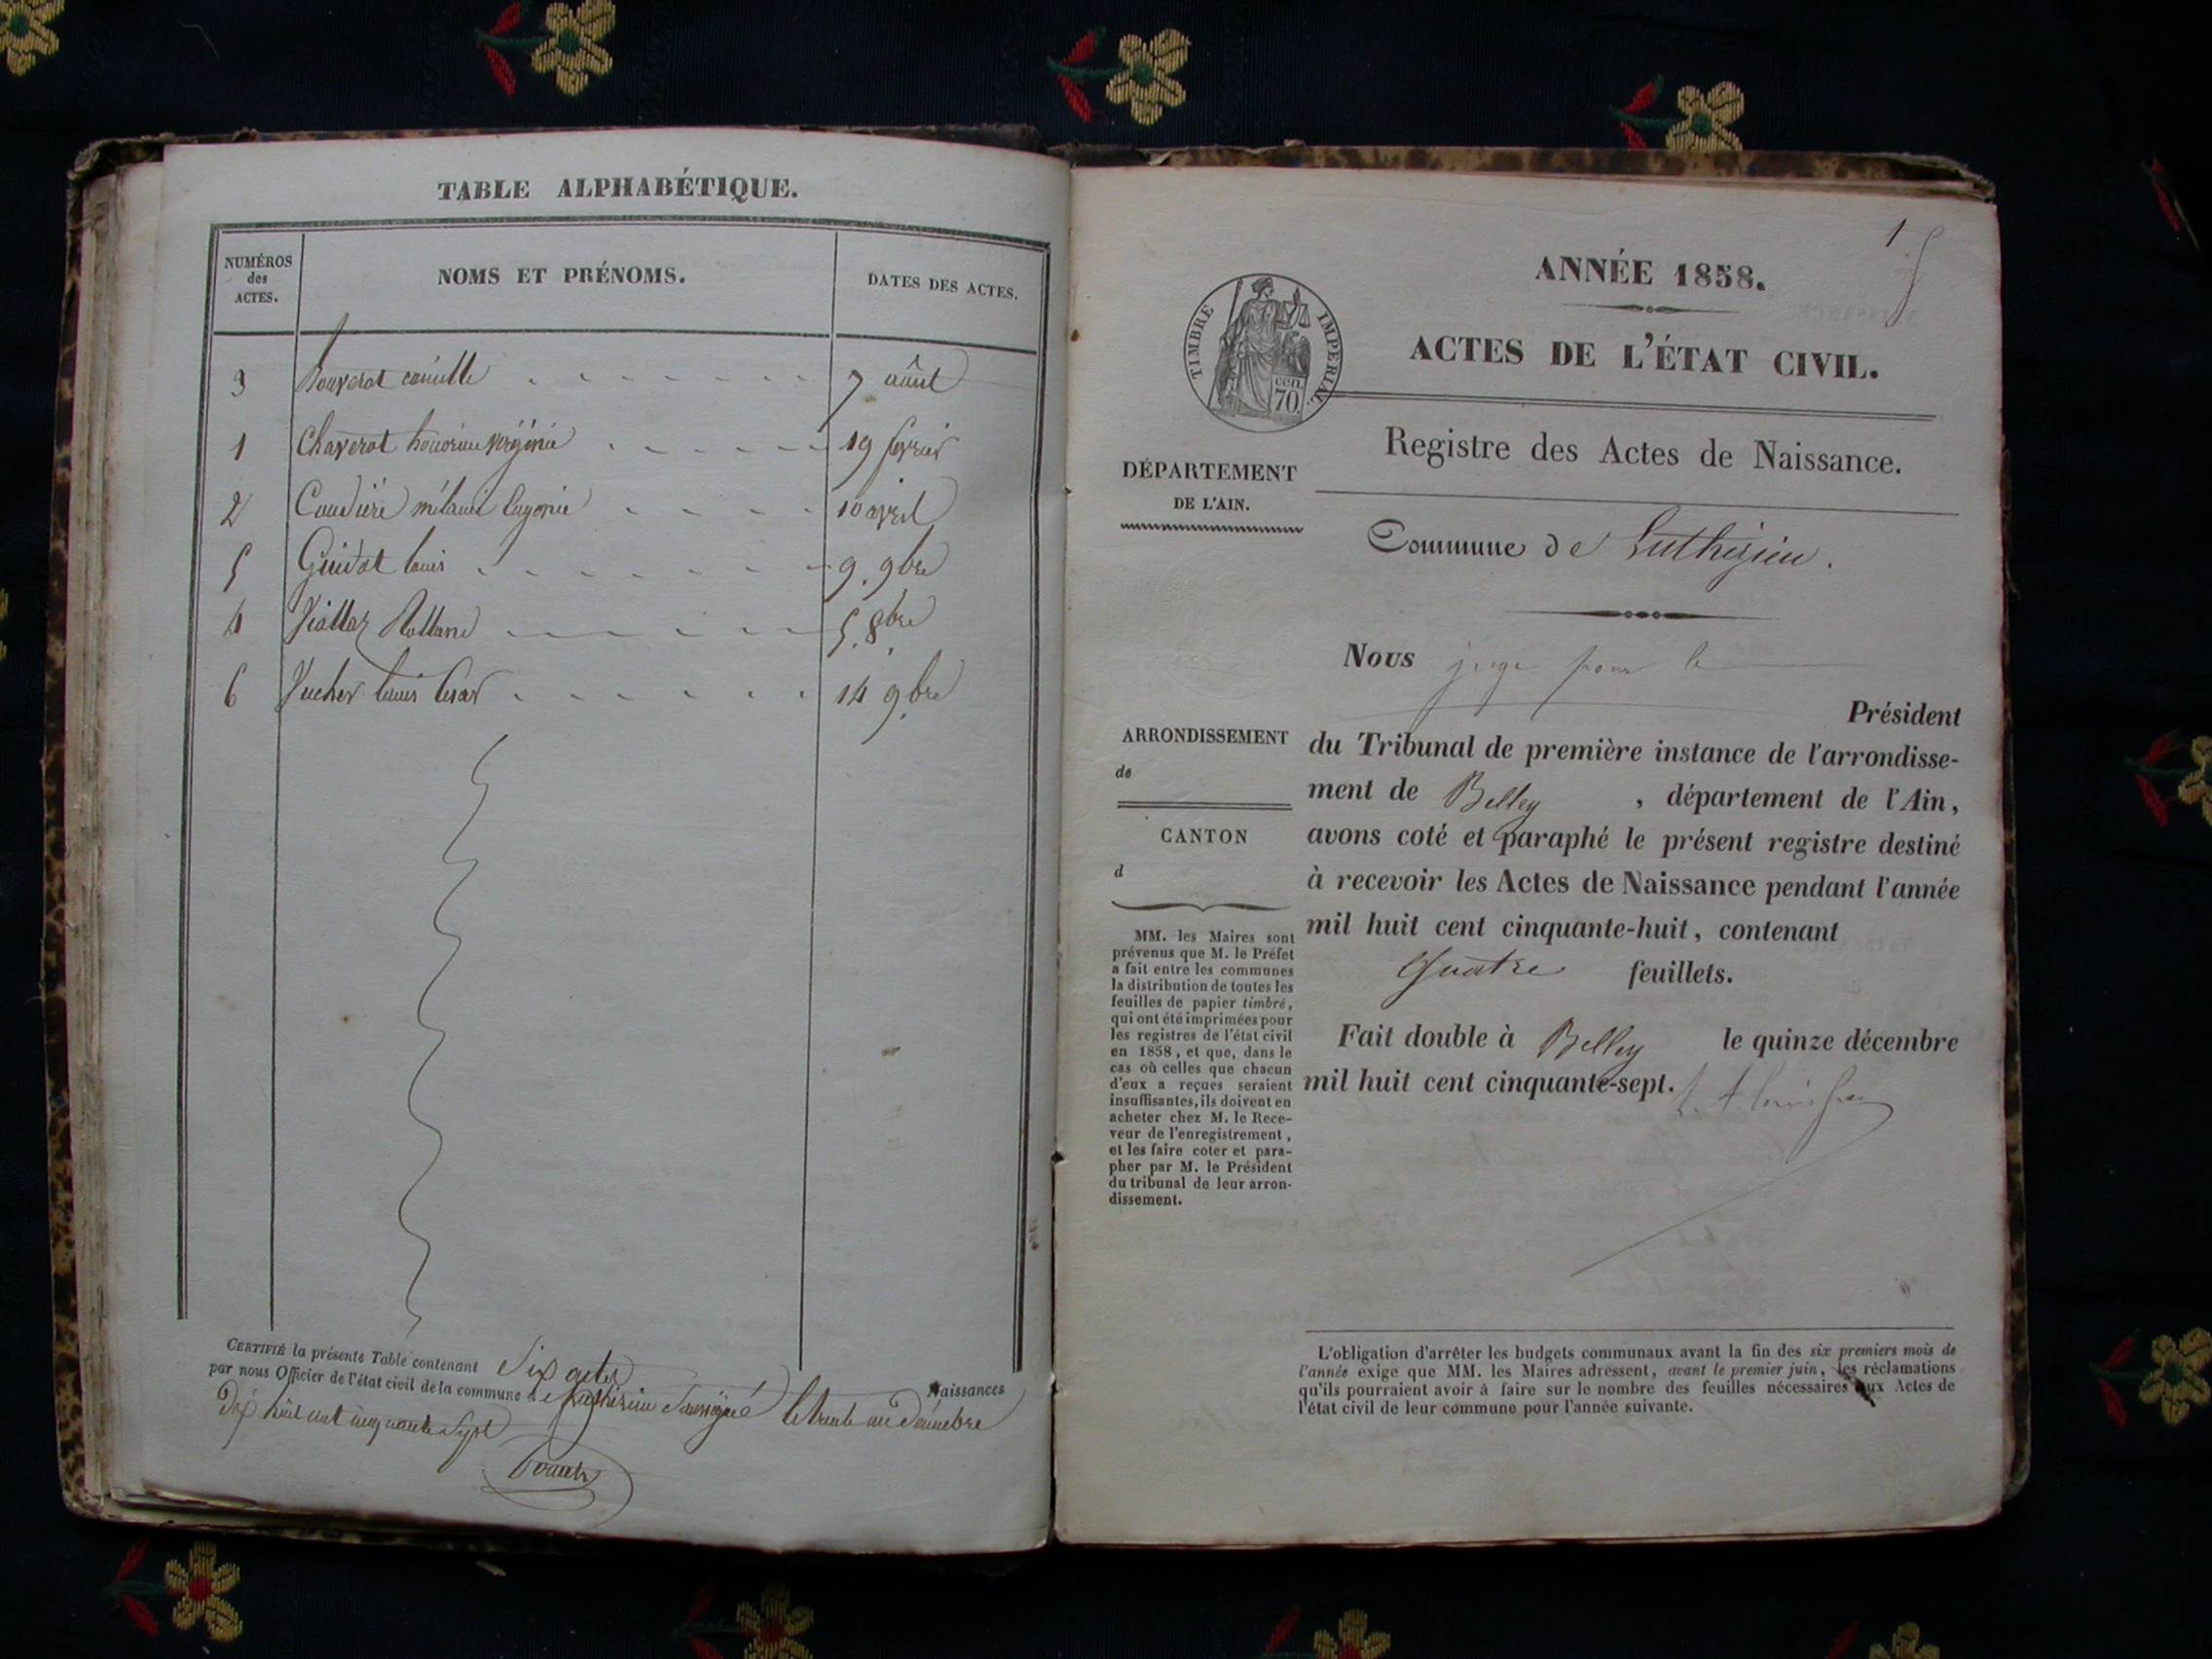 TABLE ALPHABÉTIQUE.
NUMÉROS
des
ACTES.
NOMS ET PRÉNOMS.
DATES DES ACTES.
3 camille 7 août
1 Chaverot honorine virginie 19 fevrier
2 mélanie 10 avril
5 Guidot louis 9. 9bre
4 5. 8bre
6 louis 14 9bre
CERTIFIÉ la présente Table contenant Six actes Naissances
par nous Officier de l'état civil de la commune de Luthézieu Soussigné le trente un décembre
Dix huit cent cinquante Sept
1
ANNÉE 1858.
ACTES DE L'ÉTAT CIVIL.
TIMBRE IMPÉRIAL
cen.
70.
Registre des Actes de Naissance.
DÉPARTEMENT
DE L'AIN.
Commune de Luthézieu.
Nous juge pour le
Président
du Tribunal de première instance de l'arrondisse-
ment de Belley, département de l'Ain,
avons coté et paraphé le présent registre destiné
à recevoir les Actes de Naissance pendant l'année
mil huit cent cinquante-huit, contenant
Quatre feuillets.
Fait double à Belley le quinze décembre
mil huit cent cinquante-sept.
ARRONDISSEMENT
de
CANTON
d
MM. les Maires sont
prévenus que M. le Préfet
a fait entre les communes
la distribution de toutes les
feuilles de papier timbré,
qui ont été imprimées pour
les registres de l'état civil
en 1858, et que, dans le
cas où celles que chacun
d'eux a reçues seraient
insuffisantes, ils doivent en
acheter chez M. le Rece-
veur de l'enregistrement,
et les faire coter et para-
pher par M. le Président
du tribunal de leur arron-
dissement.
L'obligation d'arrêter les budgets communaux avant la fin des six premiers mois de
l'année exige que MM. les Maires adressent, avant le premier juin, les réclamations
qu'ils pourraient avoir à faire sur le nombre des feuilles nécessaires aux Actes de
l'état civil de leur commune pour l'année suivante.